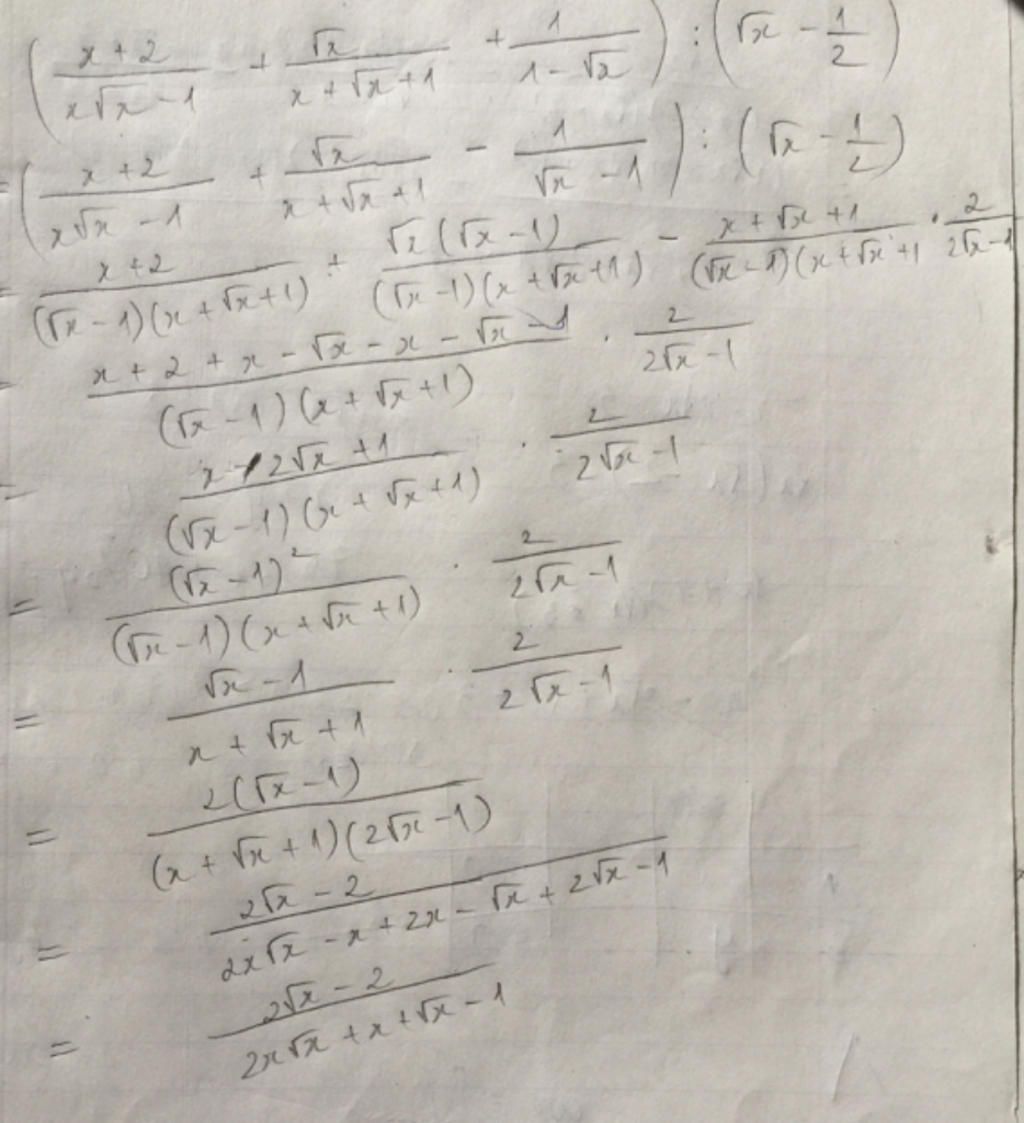 (x+2/(x√x-1) + √x/(x+√x+1) + 1/(1-√x)) : (√x - 1/2)
= ((x+2)/(x√x-1) + √x/(x+√x+1) - 1/(√x-1)) : (√x - 1/2)
= (x+2)/((√x-1)(x+√x+1)) + √x(√x-1)/((√x-1)(x+√x+1)) - (x+√x+1)/((√x-1)(x+√x+1) · 2/(2√x-1)
= (x+2+x-√x-x-√x-1)/((√x-1)(x+√x+1)) · 2/(2√x-1)
= (x-2√x+1)/((√x-1)(x+√x+1)) · 2/(2√x-1)
= (√x-1)²/((√x-1)(x+√x+1)) · 2/(2√x-1)
= (√x-1)/(x+√x+1) · 2/(2√x-1)
= 2(√x-1)/((x+√x+1)(2√x-1))
= (2√x-2)/(2x√x-x+2x-√x+2√x-1)
= (2√x-2)/(2x√x+x+√x-1)